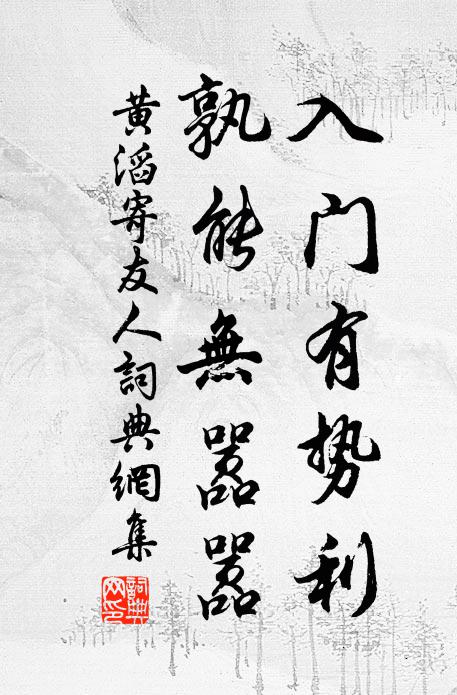 入门有势利
孰能無嚣嚣
黄滔寄友人詞典網集
詞典网印